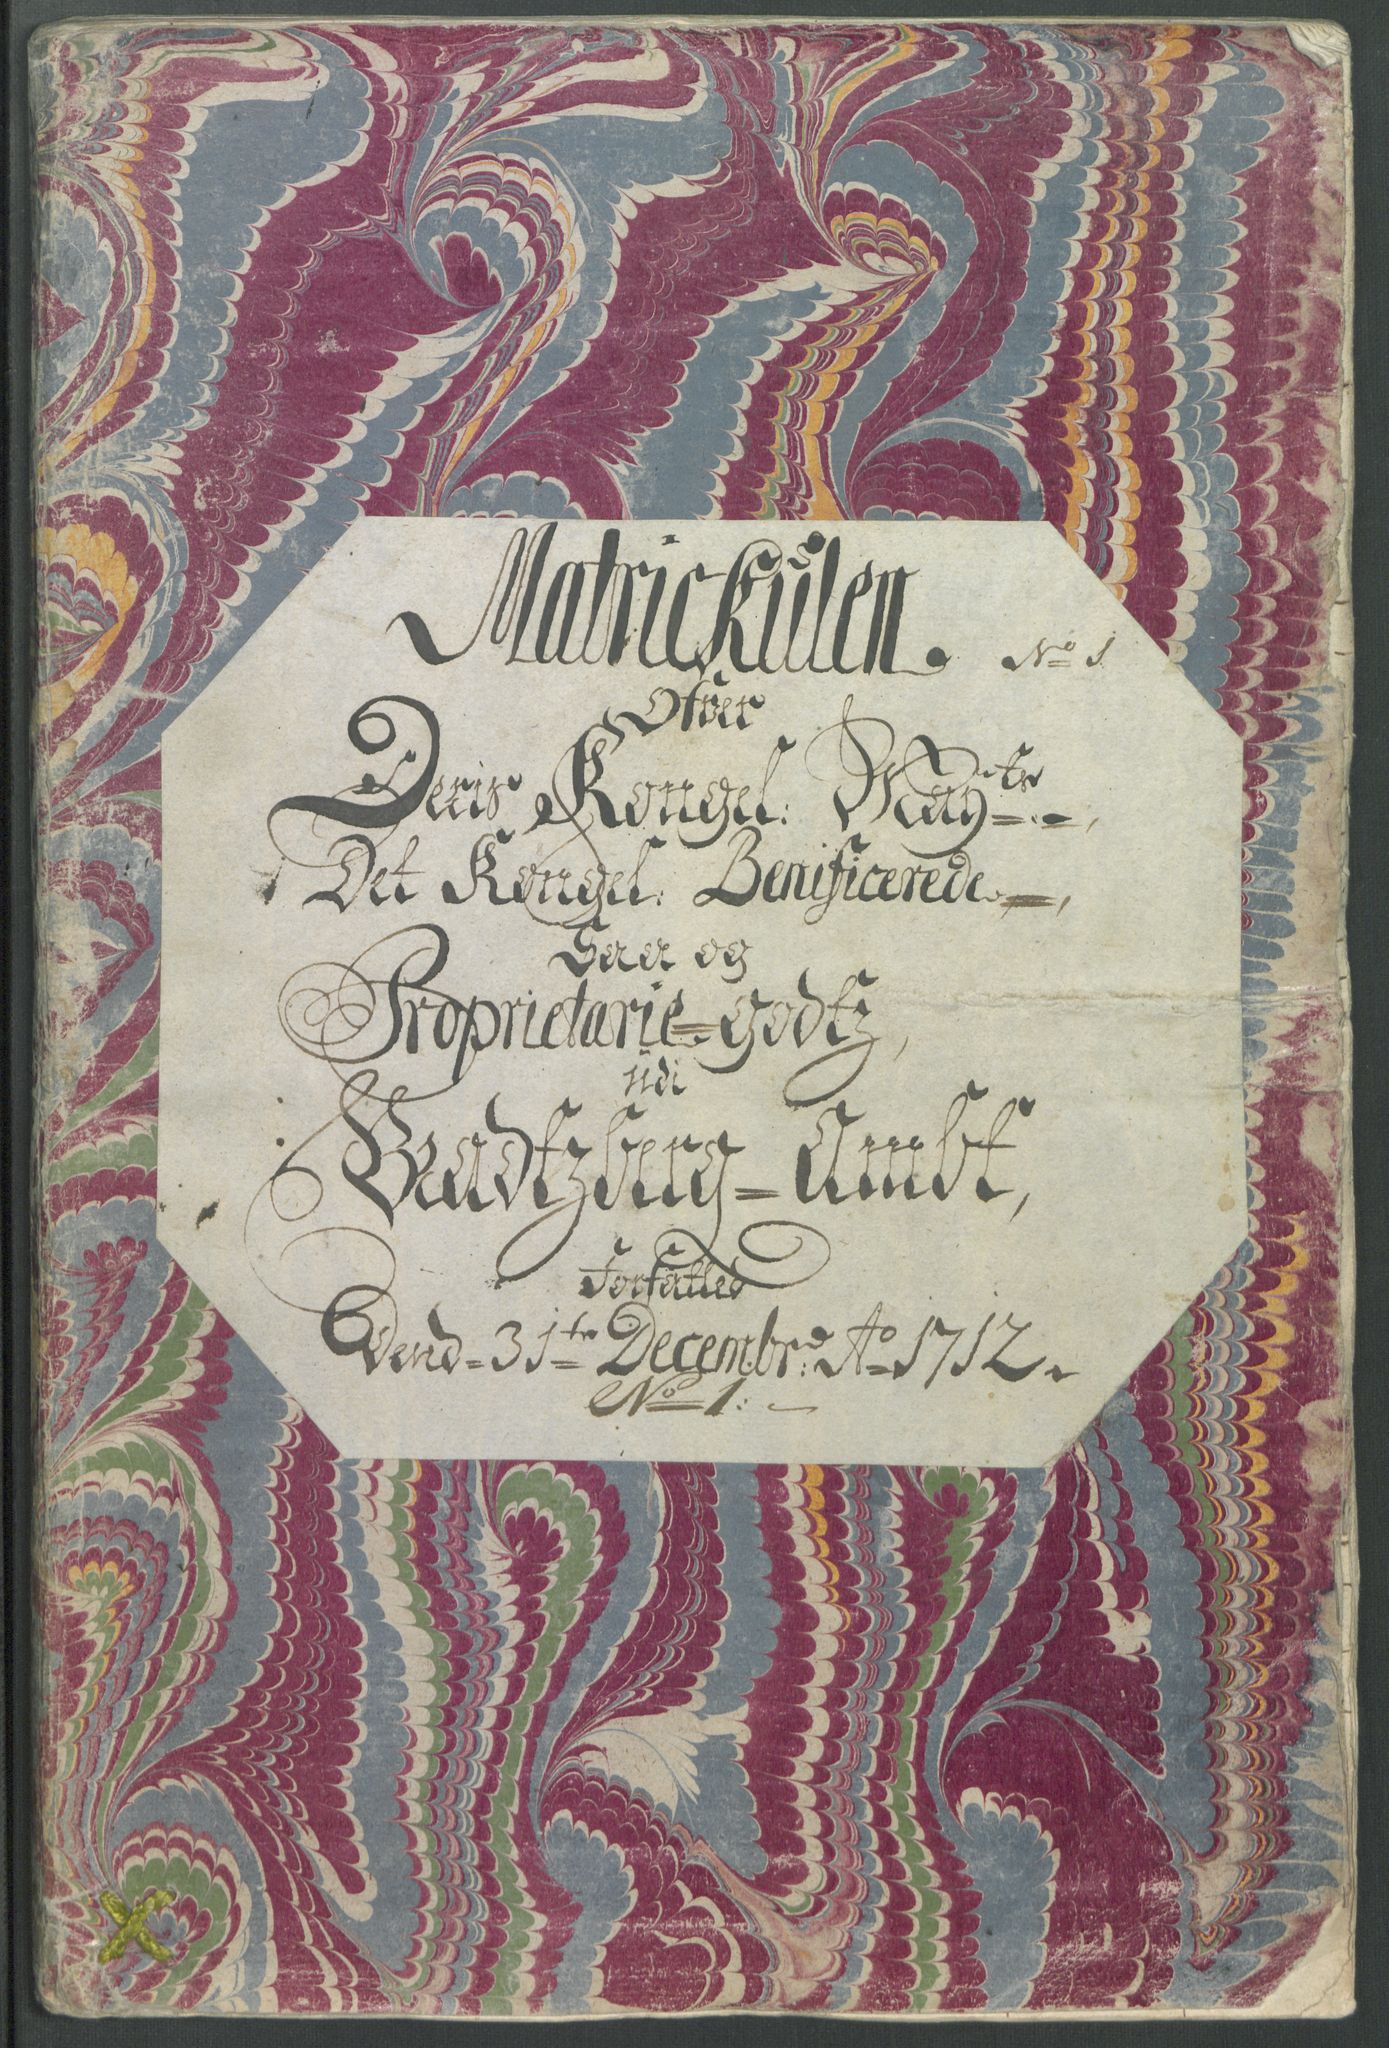 Matrickulen. No 1.
Ofver
Deris Kongel: Mayts
Det Kongel: Benificerede,
Saa og
Proprietarie-godtz,
udi
Bradtzberg-Ambt,
Forfattet
Dend 31te Decembr: Ao 1712.
No 1: